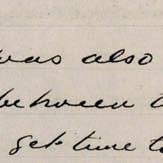 was also
between
get time to